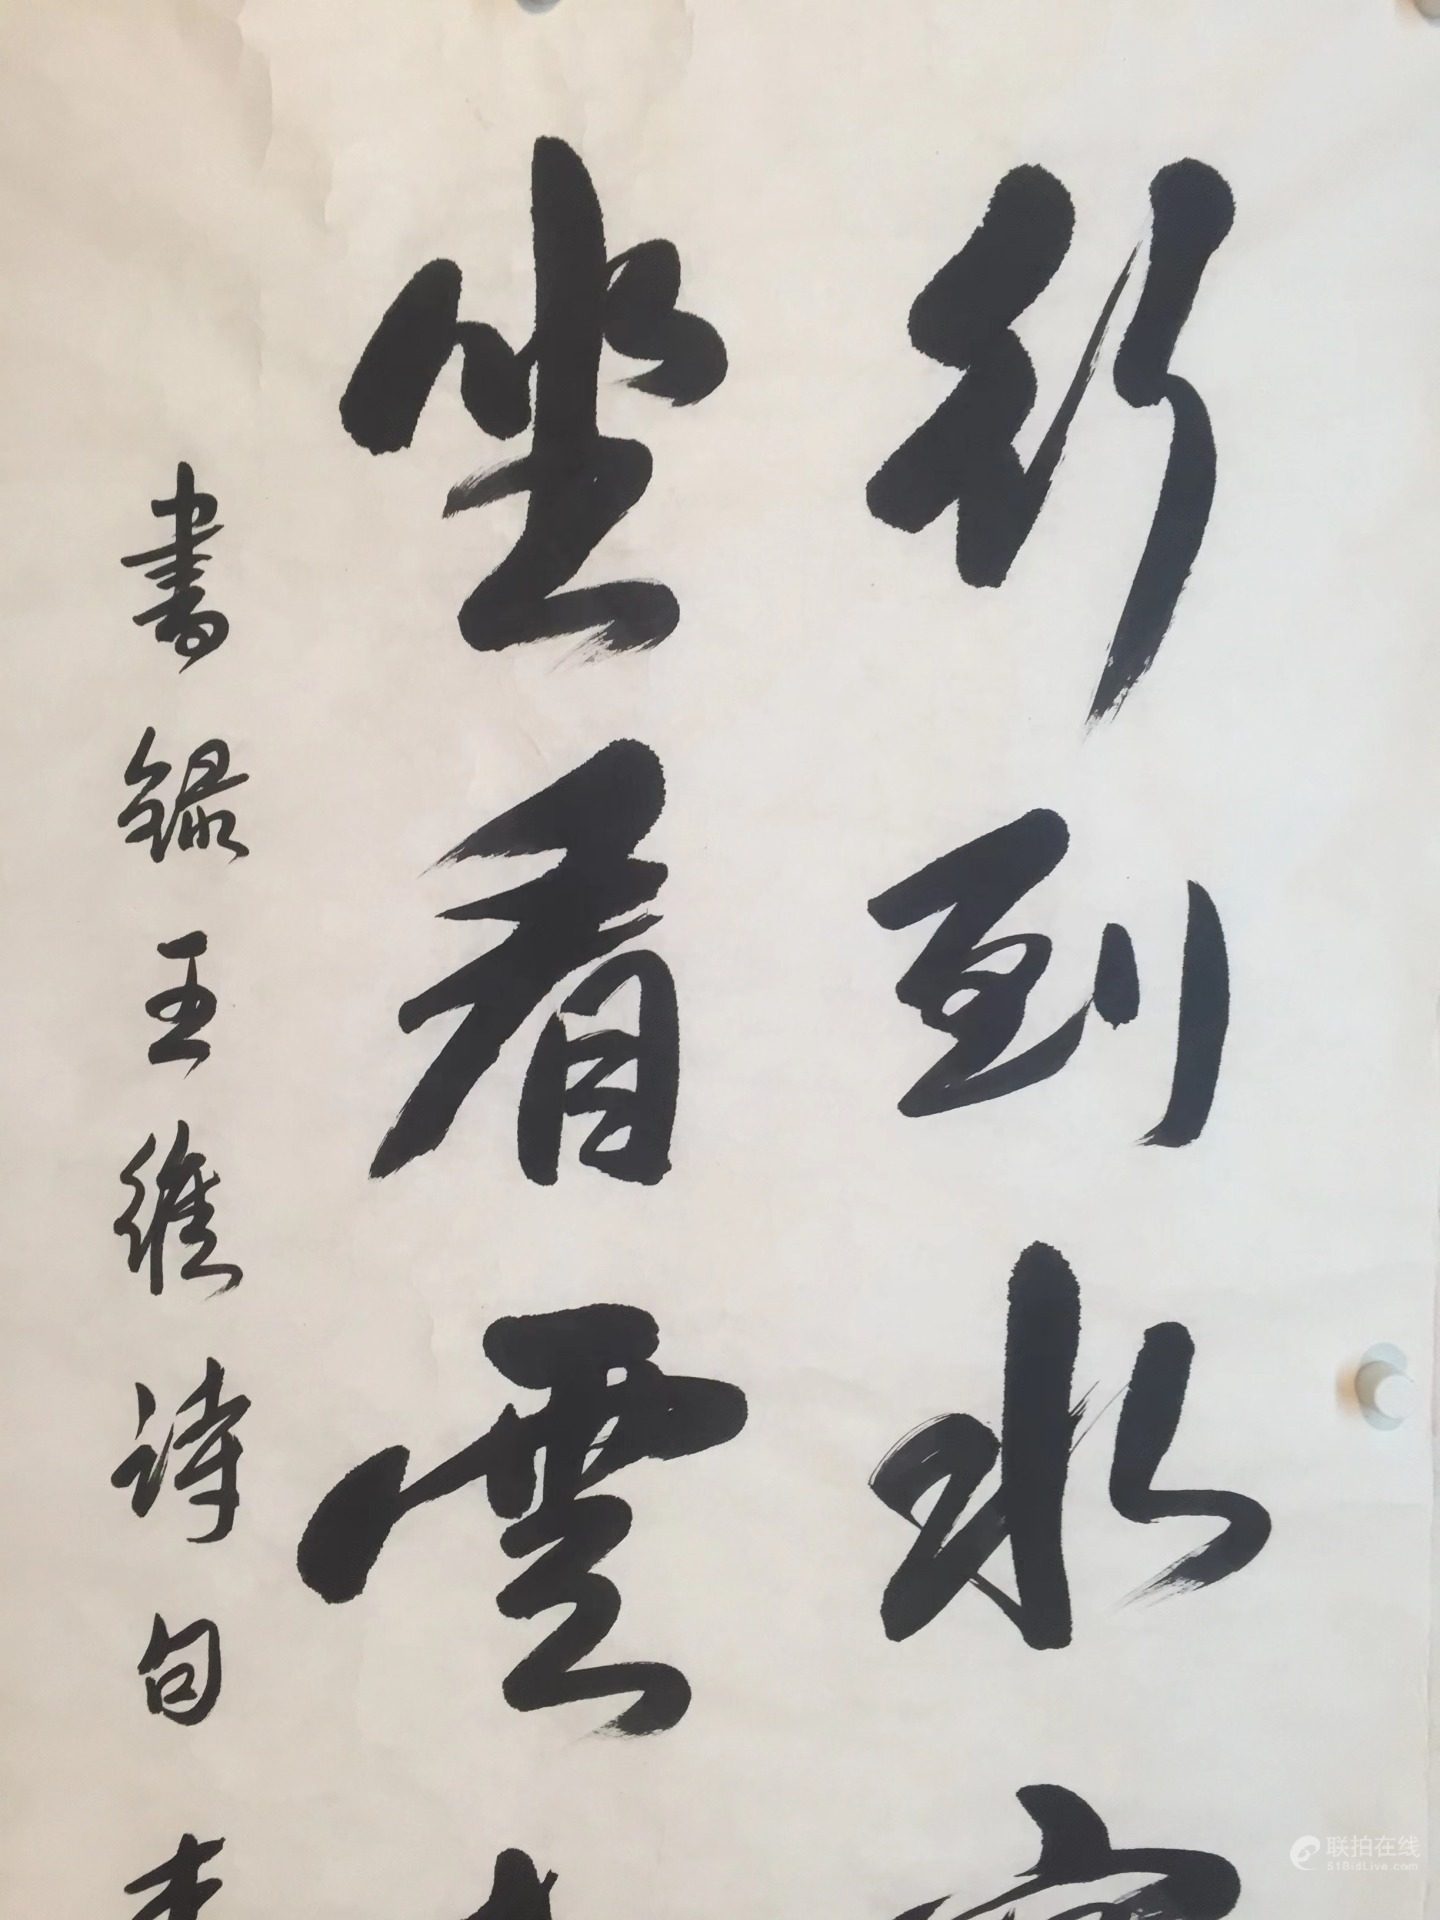 行到水
坐看雲
書録王維詩句
联拍在线
51BidLive.com